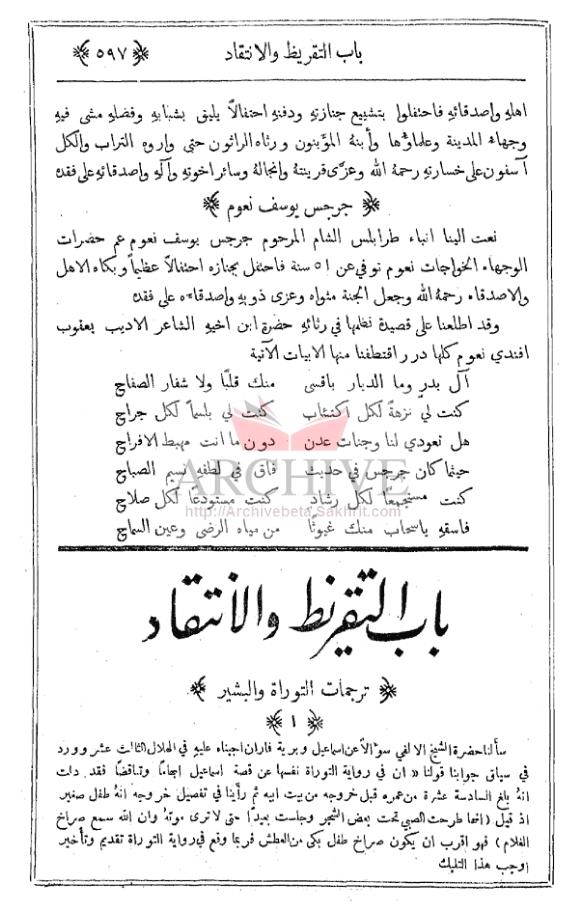 باب التقريظ والانتقاد ﴿٥٩٧﴾
اهله واصدقائه فاحتفلوا بتشييع جنازته ودفنه احتفالاً يليق بشبابه وفضله مشى فيه
وجهاء المدينة وعلماؤها وأبنهُ المؤبنون ورثاه الراثون حتى واروه التراب والكل
آسفون على خسارته رحمهُ الله وعزَّى قرينتهُ وانجالهُ وسائر اخوته وآله واصدقائه على فقده
﴿ جرجس يوسف نعوم ﴾
نعت الينا انباء طرابلس الشام المرحوم جرجس يوسف نعوم عم حضرات
الوجهاء الخواجات نعوم توفي عن ٥١ سنة فاحتفل بجنازه احتفالاً عظيماً وبكاه الاهل
والاصدقاء رحمهُ الله وجعل الجنة مثواه وعزى ذويه واصدقاءه على فقده
وقد اطلعنا على قصيدة نظمها في رثائه حضرة ابن اخيه الشاعر الاديب يعقوب
افندي نعوم كلها درر اقتطفنا منها الابيات الآتية
آل بدر وما الديار باقسى منك قلبًا ولا شفار الصفاح
كنت لي نزهةً لكل اكتئاب كنت لي بلسماً لكل جراح
هل تعودي لنا وجنات عدن دون ما انت مهبط الافراح
حيثما كان جرجس في حديث فاق في لطفه نسيم الصباح
كنت مستجمعًا لكل رشاد كنت مستودعًا لكل صلاح
فاسقه ياسحاب منك غيوثًا من مياه الرضى وعين السماح
ARCHIVE
http://Archivebeta.Sakhrit.com
باب التقريظ والانتقاد
﴿ ترجمات التوراة والبشير ﴾
﴿ ١ ﴾
سألنا حضرة الشيخ الالفي سؤالاً عن اسماعيل وبرية فاران اجبناه عليه في الهلال الثالث عشر وورد
في سياق جوابنا قولنا « ان في رواية التوراة نفسها عن قصة اسماعيل ابهاماً وتناقضاً فقد دلت
انهُ بلغ السادسة عشرة من عمره قبل خروجه من بيت ابيه ثم رأينا في تفصيل خروجه انهُ طفل صغير
اذ قيل ( انها طرحت الصبي تحت بعض الشجر وجلست بعيداً حتى لا ترى موتهُ وان الله سمع صراخ
الغلام ) فهو اقرب ان يكون صراخ طفل بكى من العطش فربما وقع في رواية التوراة تقديم وتأخير
اوجب هذا التلبك